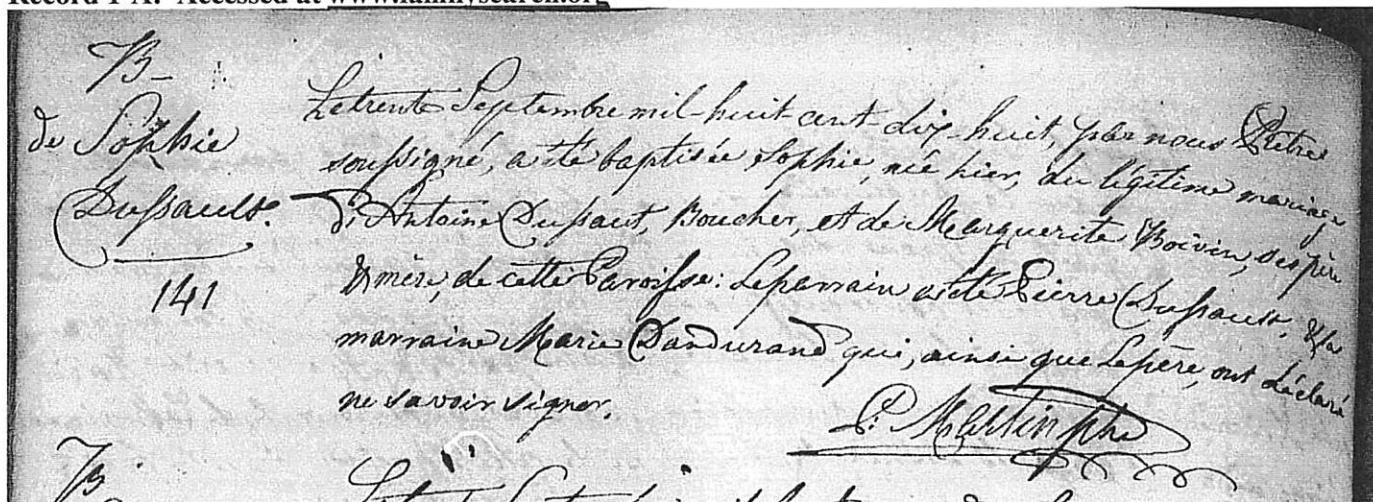 Record 1-A. Accessed at www.familysearch.org
B–
de Sophie
Dussault.
141
Le trente Septembre mil-huit-cent-dix-huit, par nous Prêtre
soussigné, a été baptisée Sophie, née hier, du légitime mariage
d'Antoine Dussaut, Boucher, et de Marguerite Boivin, ses père
& mère, de cette Paroisse: Le parrain a été Pierre Dussault, & la
marraine Marie Dandurand qui, ainsi que le père, ont déclaré
ne savoir signer.
P. Martin ptre
B